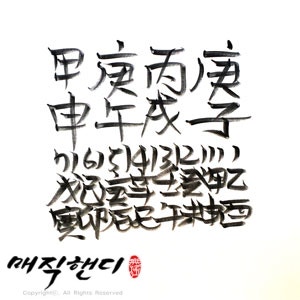 甲庚丙庚
申午戌子
71 61 51 41 31 21 11 1
戊己庚辛壬癸甲乙
寅卯辰巳午未申酉
매직핸디
Copyright©. All Rights Reserved